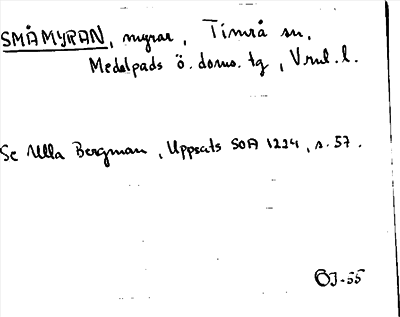 SMÅMYRAN, myrar, Timrå sn,
Medelpads ö. doms. tg, Vrnl. l.
Se Ulla Bergman, Uppsats SOA 1224, s. 57.
ÖJ-55